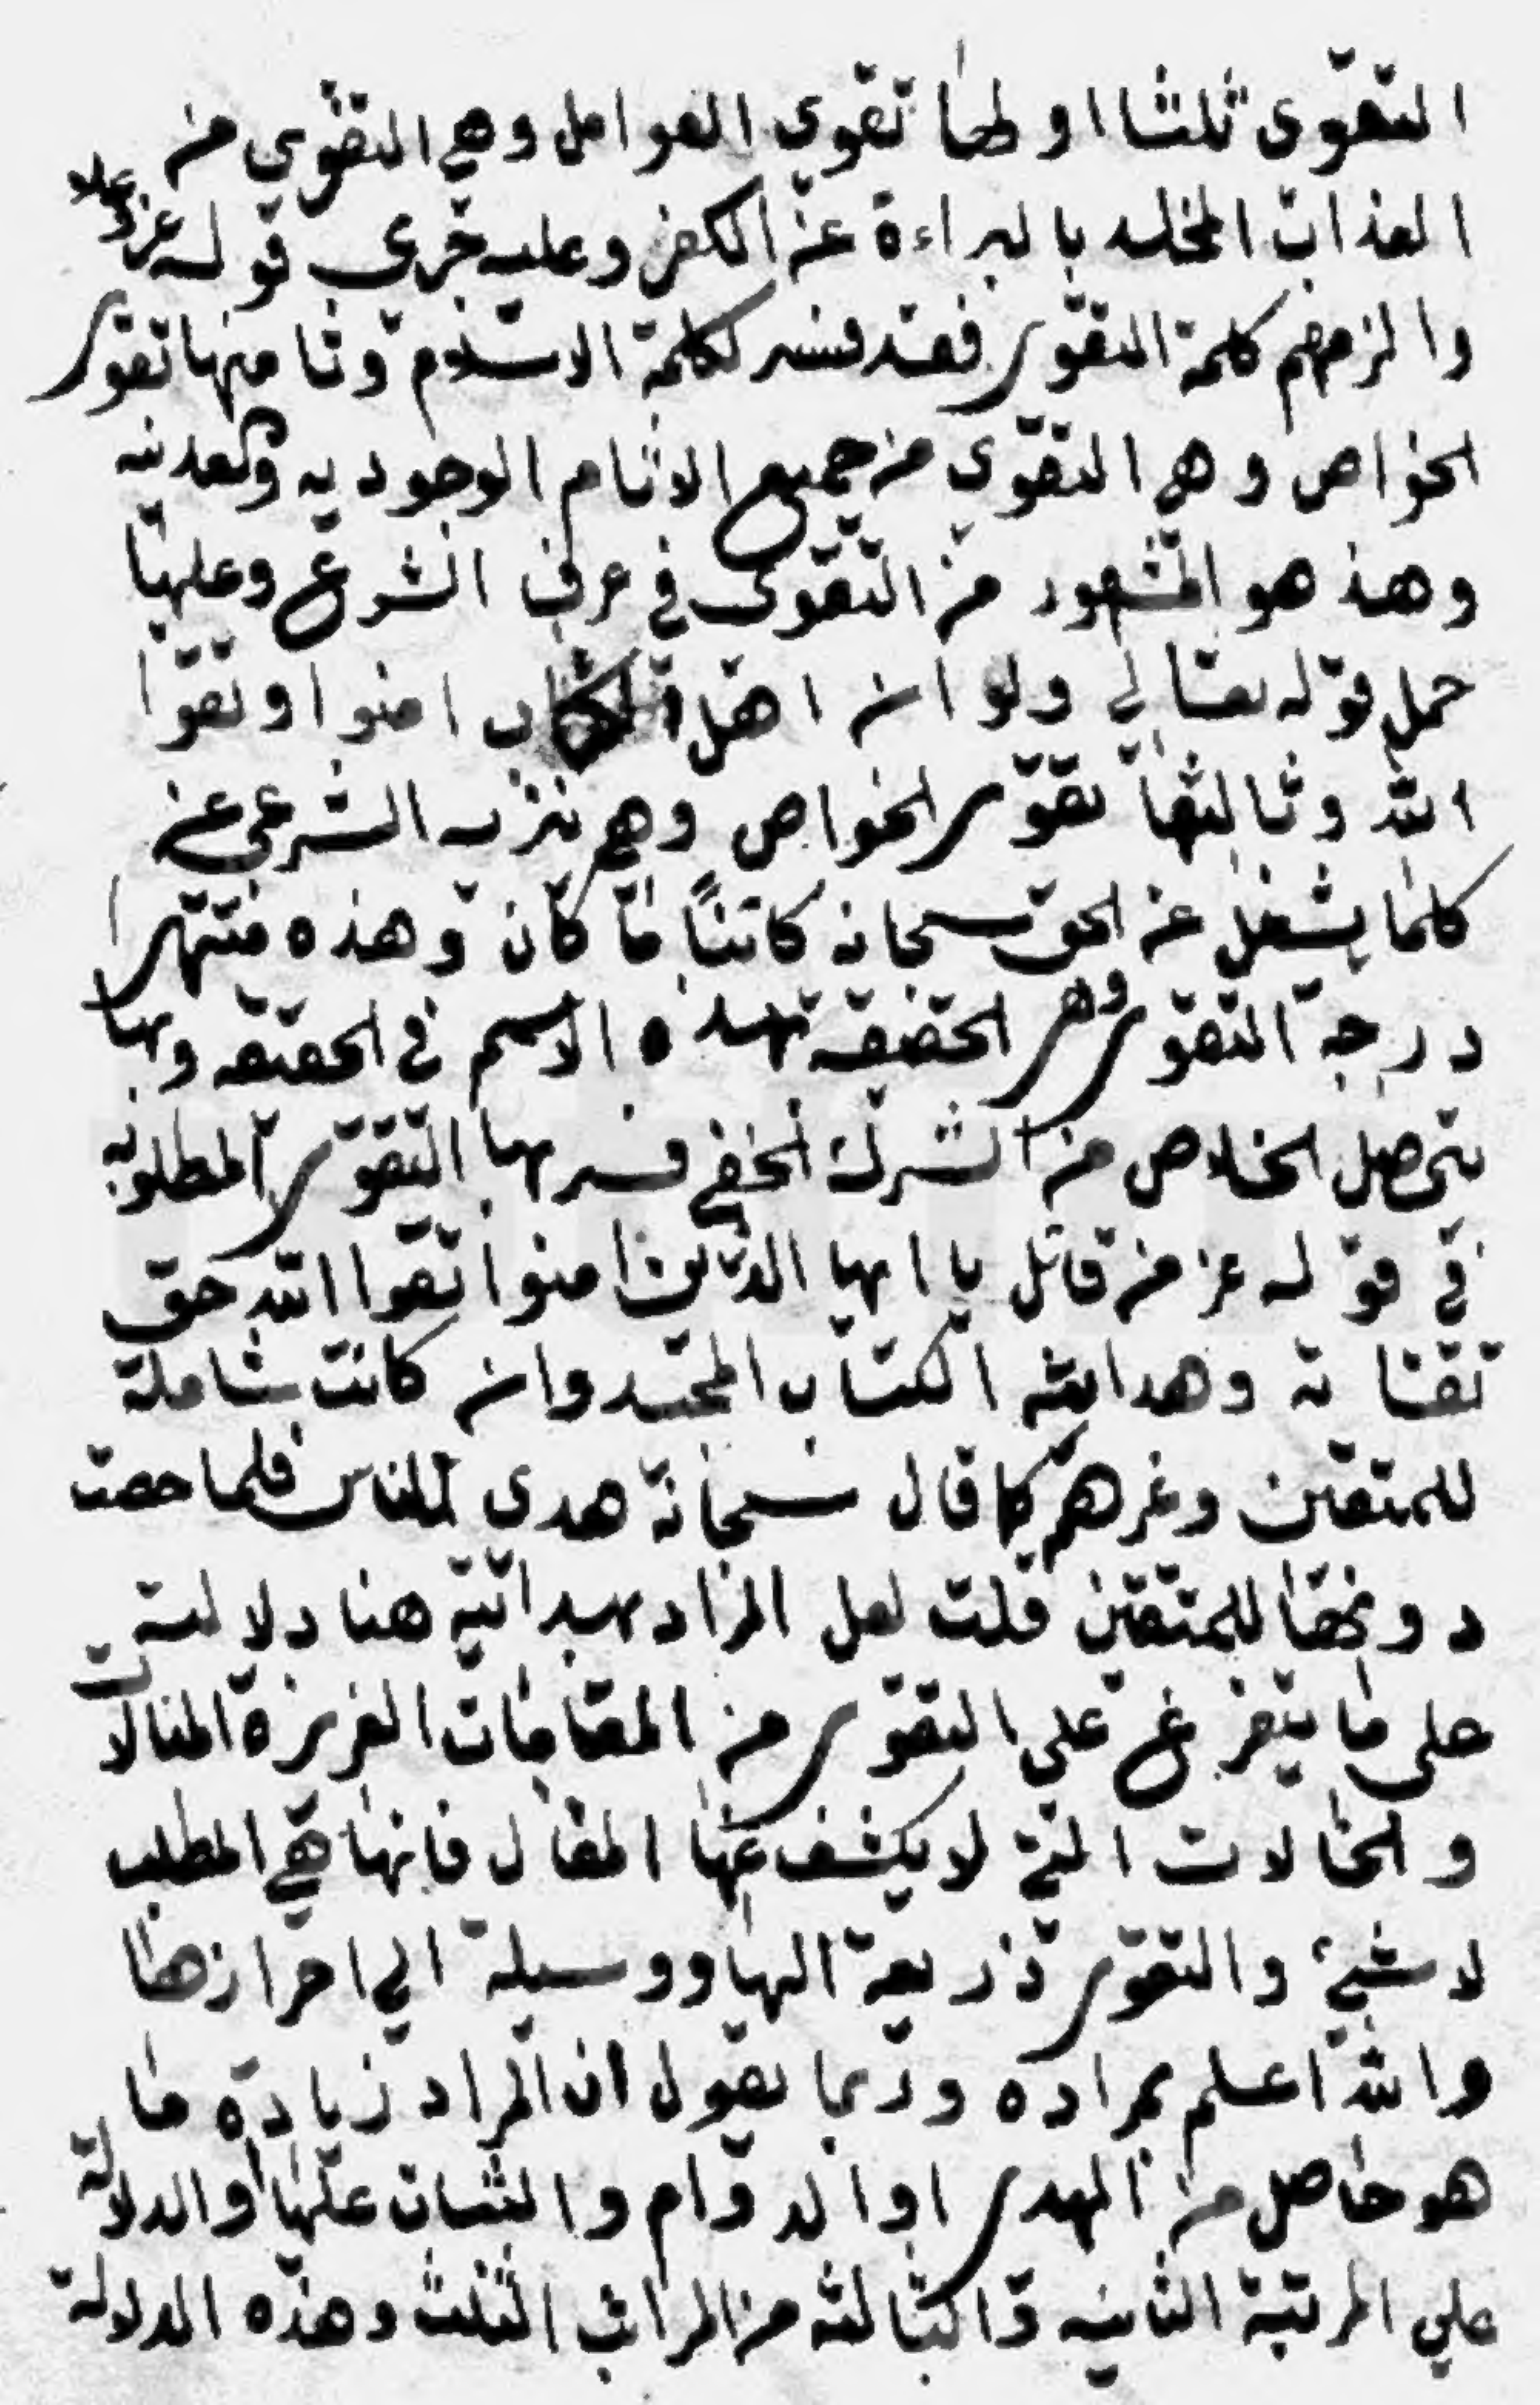 التقوى ثلثا اولها تقوي العوامل وهي التقوي من
العذاب المخلد بالبراءة عن الكفر وعليه جري قوله عز وعلا
والزمهم كلمة التقوى فقد فسر لكلمة الاسلام وثا منها تقوى
الخواص وهى التقوي من جميع الاثام الوجوديه والعدميه
وهذ هو المشهور من التقوى في عرف الشرع وعليها
حمل قوله تعالي ولو ان اهل الكتاب امنوا وتقوا
الله وثالثها تقوى الخواص وهى تنزيه الشرعي عن
كلما يشغل عن الحق سبحانه كائنًا ما كان وهذه منتهى
درجة التقوى وهى الحقيقة بهذه الاسم في الحقيقه وبها
يتحصل الخلاص من الشرك الخفي فسر بها التقوى المطلوبه
في قوله عز من قائل يا ايها الذين امنوا تقوا الله حق
تقاته وهدايته الكتاب المجيد وان كانت شاملة
للمتقين وغرهم كما قال سبحانه هدى للناس فلما خصت
دونها للمتقين قلت لعل المراد بهدايته هنا دلالته
على ما يتفرع علي التقوى من المقامات العزيزة المنالات
والحالات التي لا يكشف عنها المقال فانها هي المطلب
لا شيئ والتقوى ذريعة اليها ووسيلة الي احرازها
والله اعلم بمراده وربما تقول ان المراد زيادة ما
هو حاصل من الهدى او الدوام والثبات عليها او الدلالة
علي المرتبة الثانيه والثالثه من المراتب الثلث وهذه الدلالة